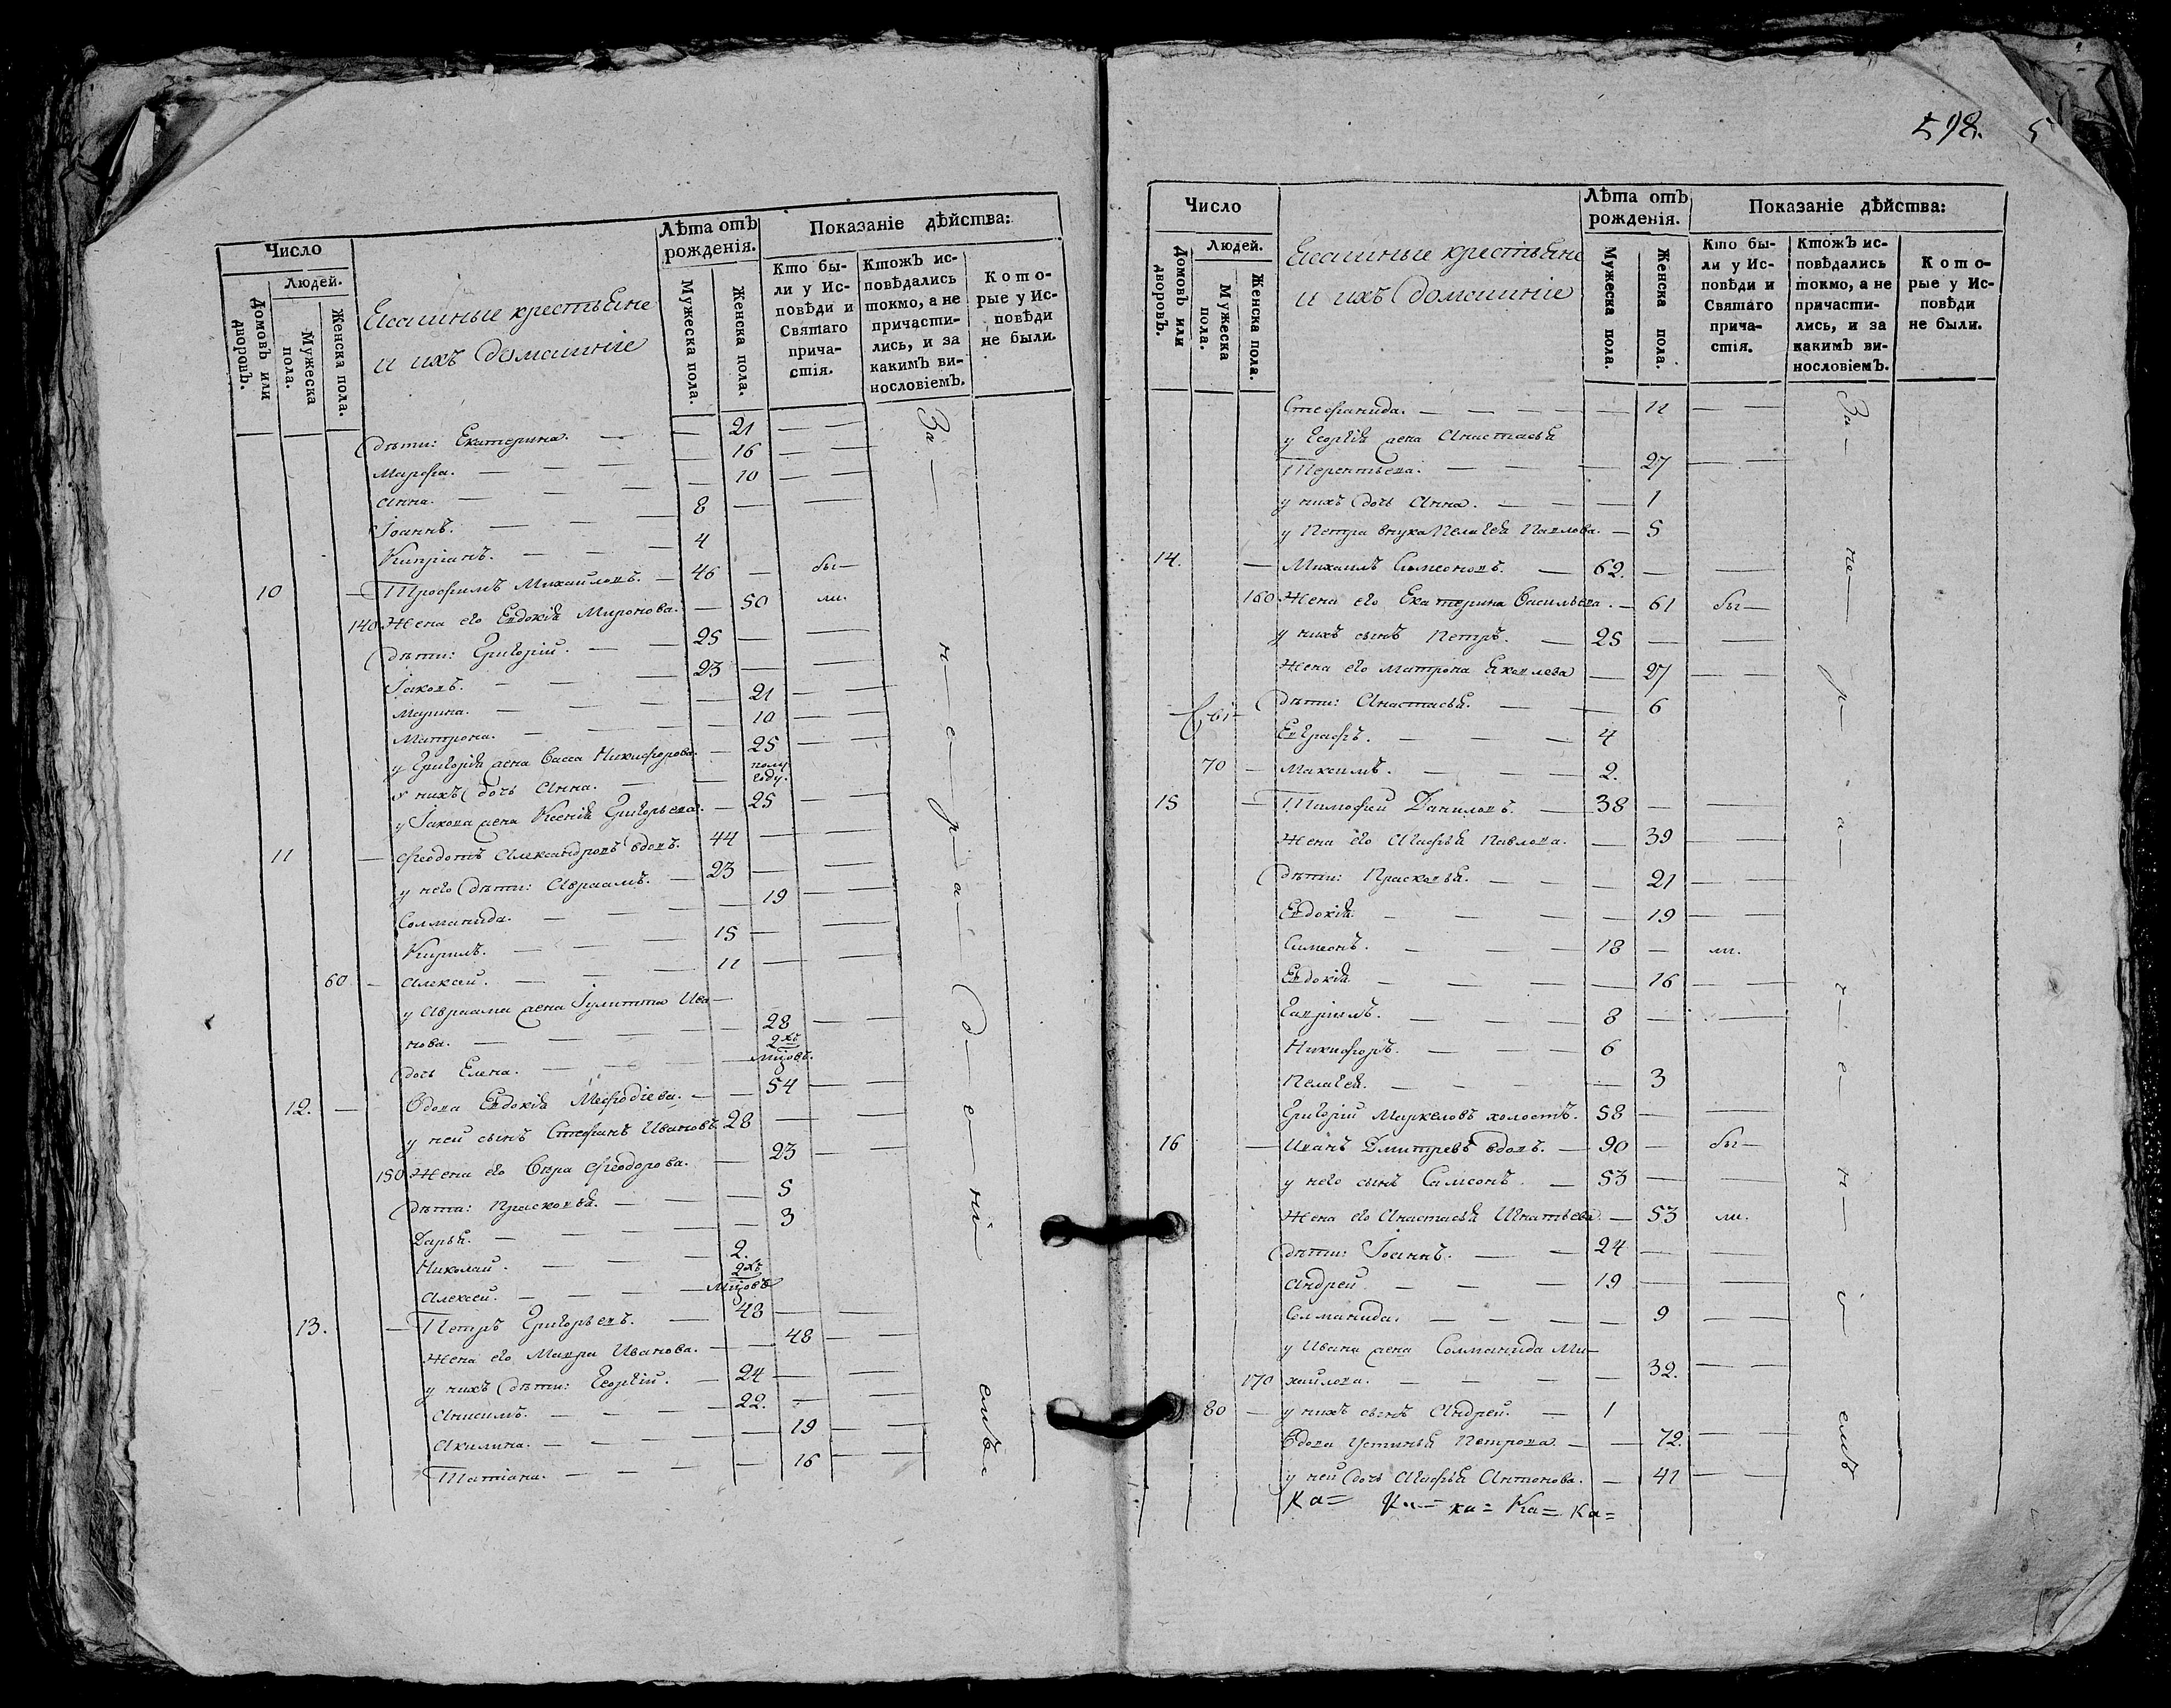 Число
Людей.
Домовъ или дворовъ.
Мужеска пола.
Женска пола.
Ясашные крестьяне
и ихъ домашніе
Лѣта отъ рожденія.
Мужеска пола.
Женска пола.
Показаніе дѣйства:
Кто были у Исповѣди и Святаго причастія.
Ктожъ исповѣдались токмо, а не причастились, и за какимъ винословіемъ.
Которые у Исповѣди не были.
дѣти: Екатерина. 21
Марфа. 16
Анна. 10
Іоаннъ. 8
Кипріанъ. 4
10 Трофимъ Михайловъ. 46 бы-
140 Жена его Евдокія Миронова. 50 ли.
дѣти: Григорій. 25
Іаковъ. 23
Марина. 21
Матрона. 10
у Григорія жена Васса Никифорова. 25
у нихъ дочь Анна. полу году.
у Іакова жена Ксенія Григорьева. 25
11 Феодотъ Александровъ вдовъ. 44
у него дѣти: Авраамъ. 23
Соломанида. 19
Кирилъ. 15
60 Алексей. 11
у Авраама жена Іулитта Ива-
нова. 28
дочь Елена. 2хъ мцовъ.
12. Вдова Евдокія Мефодіева. 54
у ней сынъ Стефанъ Ивановъ. 28
150 Жена его Вѣра Феодорова. 23
дѣти: Прасковья. 5
Дарья. 3
Николай. 2.
Алексей. 2хъ мцовъ
13. Петръ Григорьевъ. 48
Жена его Мавра Иванова. 48
у нихъ дѣти: Георгій. 24
Анисимъ. 22.
Акилина. 19
Татіана. 16
За- не- ра- де- ні- емъ.
598. 5
Число
Людей.
Домовъ или дворовъ.
Мужеска пола.
Женска пола.
Ясашные крестьяне
и ихъ домашніе
Лѣта отъ рожденія.
Мужеска пола.
Женска пола.
Показаніе дѣйства:
Кто были у Исповѣди и Святаго причастія.
Ктожъ исповѣдались токмо, а не причастились, и за какимъ винословіемъ.
Которые у Исповѣди не были.
Стефанида. 11
у Георгія жена Анастасья
Терентьева. 27
у нихъ дочь Анна. 1
у Петра внука Пелагея Павлова. 5
14. Михаилъ Симеоновъ. 62.
160 Жена его Екатерина Васильева. 61 бы-
у нихъ сынъ Петръ. 25
Жена его Матрона Яковлева 27
дѣти: Анастасья. 6
Евграфъ. 4
70 Максимъ. 2.
15 Тимофей Даниловъ. 38
Жена его Агафья Павлова. 39
дѣти: Прасковья. 21
Евдокія. 19
Симеонъ. 18 ли.
Евдокія 16
Гавріилъ. 8
Никифоръ. 6
Пелагея. 3
Григорій Маркеловъ холостъ. 58
16 Иванъ Дмитревъ вдовъ. 90 бы-
у него сынъ Самсонъ. 53
Жена его Анастасья Игнатьева. 53 ли.
дѣти: Іоаннъ. 24
Андрей 19
Соломанида. 9
у Ивана жена Соломанида Ми-
170 хайлова. 32.
80 у нихъ сынъ Андрей. 1
Вдова Устинья Петрова. 72.
у ней дочь Агафья Антонова. 41
За- не- ра- де- ні- емъ
Ка= Ка= ка= Ка= Ка=